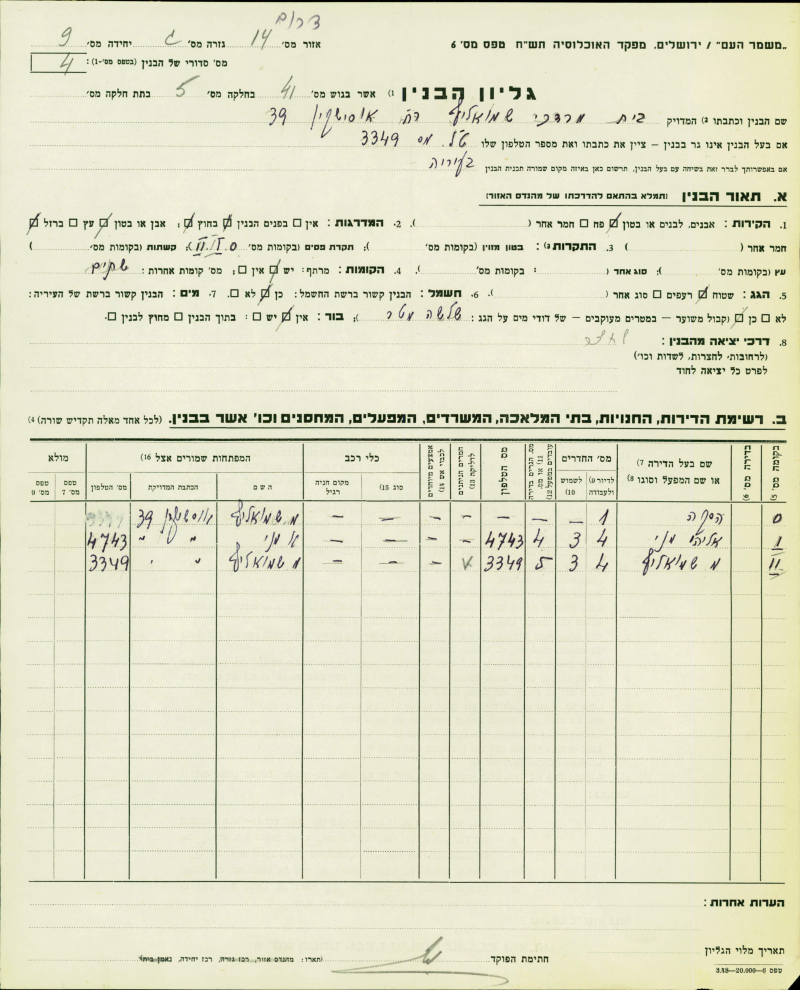 דרום
„משמר העם” / ירושלים. מפקד האוכלוסיה תש"ח טפס מס' 6 אזור מס' 14 גזרה מס' ג יחידה מס' 9
מס' סדורי של הבנין (בטפס מס' 1): 4
גליון הבנין (1 אשר בגוש מס' 41 בחלקה מס' 5 בתת חלקה מס'
שם הבנין וכתבתו (2 המדויק בית מרדכי שמואליף רח' אוסישקין 39
אם בעל הבנין אינו גר בבנין – ציין את כתבתו ואת מספר הטלפון שלו טל. מס 3349
אם באפשרותך לברר זאת בשיחה עם בעל הבנין, תרשום כאן באיזה מקום שמורה תכנית הבנין בעיריה
א. תאור הבנין (תמלא בהתאם להדרכתו של מהנדס האזור)
1. הקירות: אבנים, לבנים או בטון ☑ פח ☐ חמר אחר ( ). 2. המדרגות: אין ☐ בפנים הבנין ☑ בחוץ ☑; אבן או בטון ☑ עץ ☐ ברזל ☑
חמר אחר ( ) 3. התקרות (3: בטון מזוין (בקומות מס' ); תקרת פסים (בקומות מס' 0, I, II); קשתות (בקומות מס' )
עץ (בקומות מס' ); סוג אחר ( ): בקומות מס' ). 4. הקומות: מרתף: יש ☑ אין ☐; מס' קומות אחרות: שתים
5. הגג: שטוח ☑ רעפים ☐ סוג אחר ( ). 6. חשמל: הבנין קשור ברשת החשמל: כן ☑ לא ☐. 7. מים: הבנין קשור ברשת של העיריה:
לא ☐ כן ☑ (קבול משוער – במטרים מעוקבים – של דודי מים על הגג: שלשה מטר); בור: אין ☑ יש ☐: בתוך הבנין ☐ מחוץ לבנין ☐.
8. דרכי יציאה מהבנין:
(לרחובות, לחצרות, לשדות וכו')
לפרט כל יציאה לחוד
ב. רשימת הדירות, החנויות, בתי המלאכה, המשרדים, המפעלים, המחסנים וכו' אשר בבנין. (לכל אחד מאלה תקדיש שורה) (4
בקומה מס' (5 בדירה מס' (6 שם בעל הדירה (7 או שם המפעל וסוגו (8 מס' החדרים לדיור (9 ולעבודה לשמוש (10 מס. הגרים בדירה (11 או מס. עובדים במפעל (12 מס הטלפון חמרים הניתנים לדליקה (13 אמצעים מיוחדים לכבוי אש (14 כלי רכב סוג (15 מקום חניה רגיל המפתחות שמורים אצל (16 השם הכתבת המדויקת מס' הטלפון מולא טפס מס' 7 טפס מס' 9
0 הסקה 1 – – – – – – – מ. שמואליף אוסישקין 39
I אליהו מני 4 3 4 4743 – – – – א מני " " 4743
II מ שמואליף 4 3 5 3349 V – – – מ שמואליף " " 3349
הערות אחרות:
תאריך מלוי הגליון חתימת הפוקד (תארו: מהנדס אזור, רכז גזרה, רכז יחידה, נאמן בית)
טפס 6–20.000–3.48